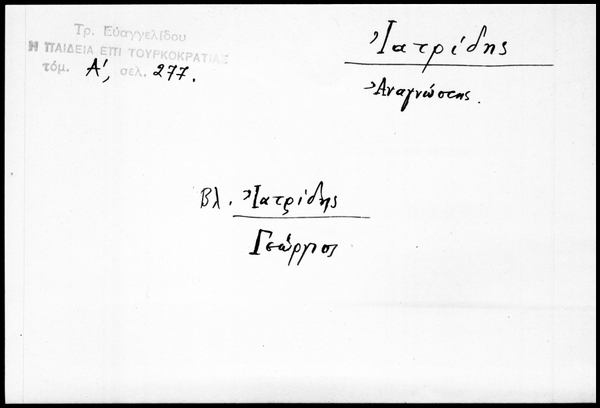 Τρ. Εὐαγγελίδου
Η ΠΑΙΔΕΙΑ ΕΠΙ ΤΟΥΡΚΟΚΡΑΤΙΑΣ
τόμ. Α', σελ. 277.
Ἰατρίδης
Ἀναγνώστης.
Βλ. Ἰατρίδης
Γεώργιος